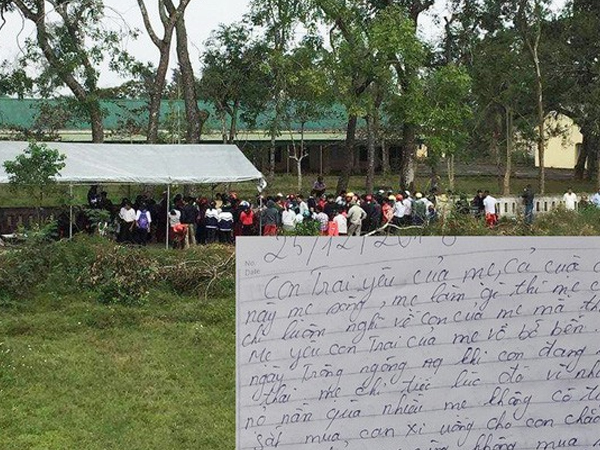 No.
Date
25/12/201
Con Trai yêu của mẹ, Cả cuộc
này mẹ sống, mẹ làm gì thì mẹ c
chỉ luôn nghĩ về con của mẹ mà th
Mẹ yêu con Trai của mẹ vô bờ bến.
ngày Trông ngóng khi con đang
thai mẹ chỉ tiếc lúc đó vì nhi
nợ nần quá nhiều mẹ không có ti
sắt mua, can xi uống cho con chắc
không mua